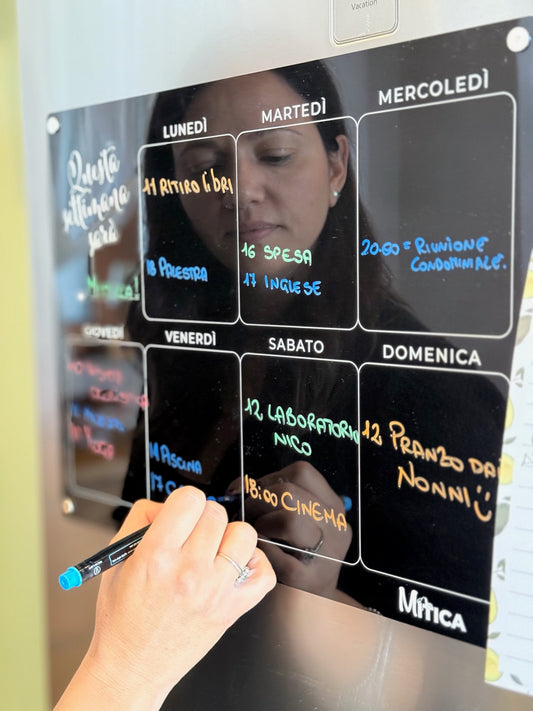 Vacation
Questa
settimana
sarà
Mitica!
LUNEDÌ
11 RITIRO libri
18 PALESTRA
MARTEDÌ
16 SPESA
17 INGLESE
MERCOLEDÌ
20.00 = RIUNIONE
CONDOMINIALE.
GIOVEDÌ
VENERDÌ
PISCINA
17
SABATO
12 LABORATORIO
NICO
18:00 CINEMA
DOMENICA
12 PRANZO DAI
NONNI
MITICA